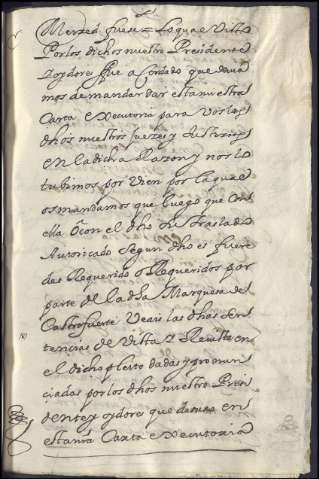 Merzed fuese = Lo qual Visto
Por los dichos nuestro Presidente
Y oydores fue acordado que deuia
mos de mandar dar esta nuestra
Carta executoria para vos los
dhos nuestros Juezes y Justicias
en la dicha Razon y nos lo
tubimos por Vien por la qual
os mandamos que luego que con
ella o con el dho su traslado
Autoricado segun dho es fuere
des Requerido o Requeridos por
parte de la dha Marquesa de
Castrofuerte Veais las dhas Sen
tencias de Vista y Reuista en
el dicho pleito dadas y pronun
ciadas por los dhos nuestro Pres
dente y oydores que de suso en
esta nra Carta executoria